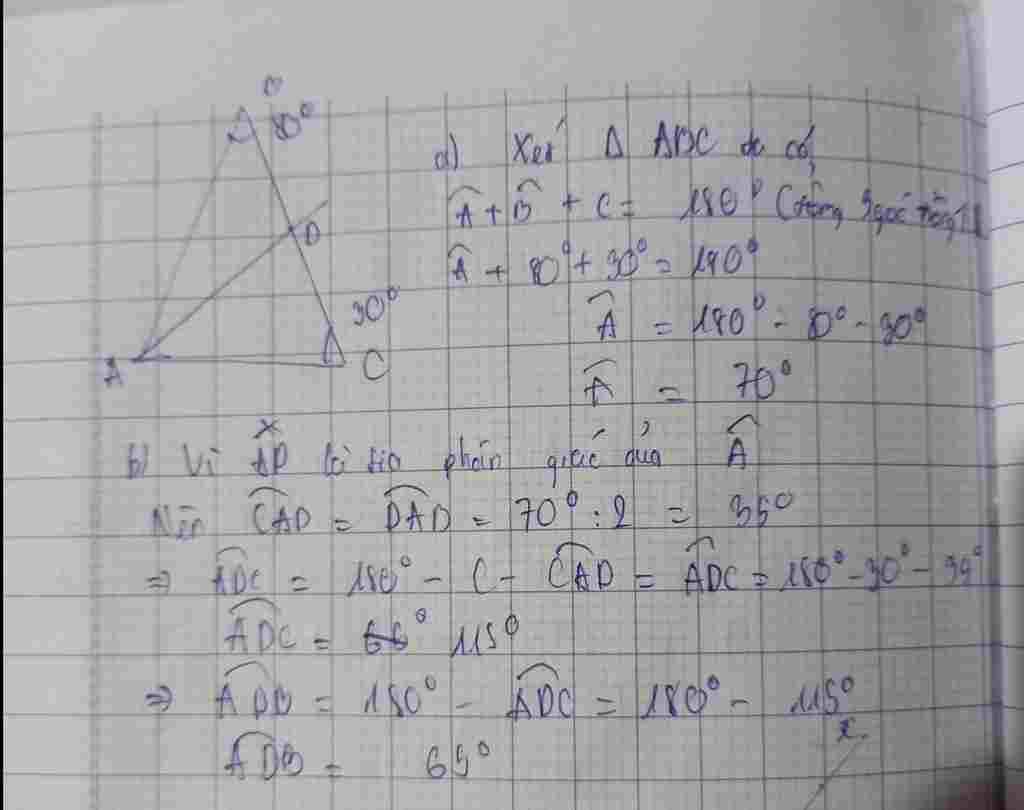 B
80°
D
30°
A
C
a) Xét Δ ABC ta có
Â + B̂ + C = 180° (tổng 3 góc trong
Â + 80° + 30° = 180°
Â = 180° - 80° - 30°
Â = 70°
b) Vì AD là tia phân giác của Â
Nên CAD = BAD = 70° : 2 = 35°
⇒ ADC = 180° - C - CAD = ADC = 180° - 30° - 35°
ADC = 115°
⇒ ADB = 180° - ADC = 180° - 115°
ADB = 65°
x